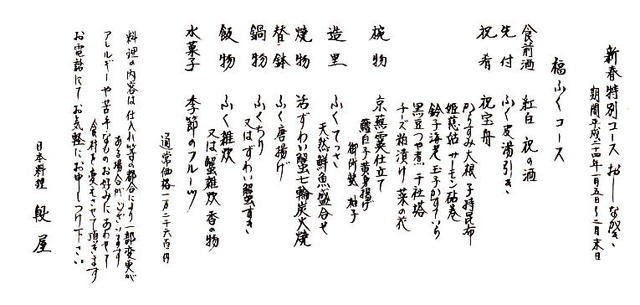 新春特別コース おしながき
期間平成二十四年一月五日～二月末日
福ふくコース
食前酒 紅白 祝の酒
先付 ふく皮湯引き
祝肴 祝宝舟
からすみ大根 子持昆布
姫慈姑 サーモン砧巻
鈴子海老 玉子かすてら
黒豆つや煮 千社塔
チーズ粕漬け 菜の花
椀物 京蕪霙仕立て
蕗白子黄身揚げ
柚子
造里 ふくてっさ
天然鮮魚盛合せ
焼物 活ずわい蟹七輪炭火焼
替鉢 ふく唐揚げ
鍋物 ふくちり
又はずわい蟹すき
飯物 ふく雑炊
又は蟹雑炊 香の物
水菓子 季節のフルーツ
通常価格一万二千六百円
料理の内容は仕入れ等の都合により一部変更が
ある場合がございます
アレルギーや苦手なものお好みにあわせて
食材を変えさせて頂きます
お電話にてお気軽にお申しつけ下さい
日本料理 殷屋